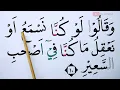 وَقَالُوْا لَوْ كُنَّا نَسْمَعُ اَوْ
نَعْقِلُ مَا كُنَّا فِيْٓ اَصْحٰبِ
السَّعِيْرِ ۝١٠